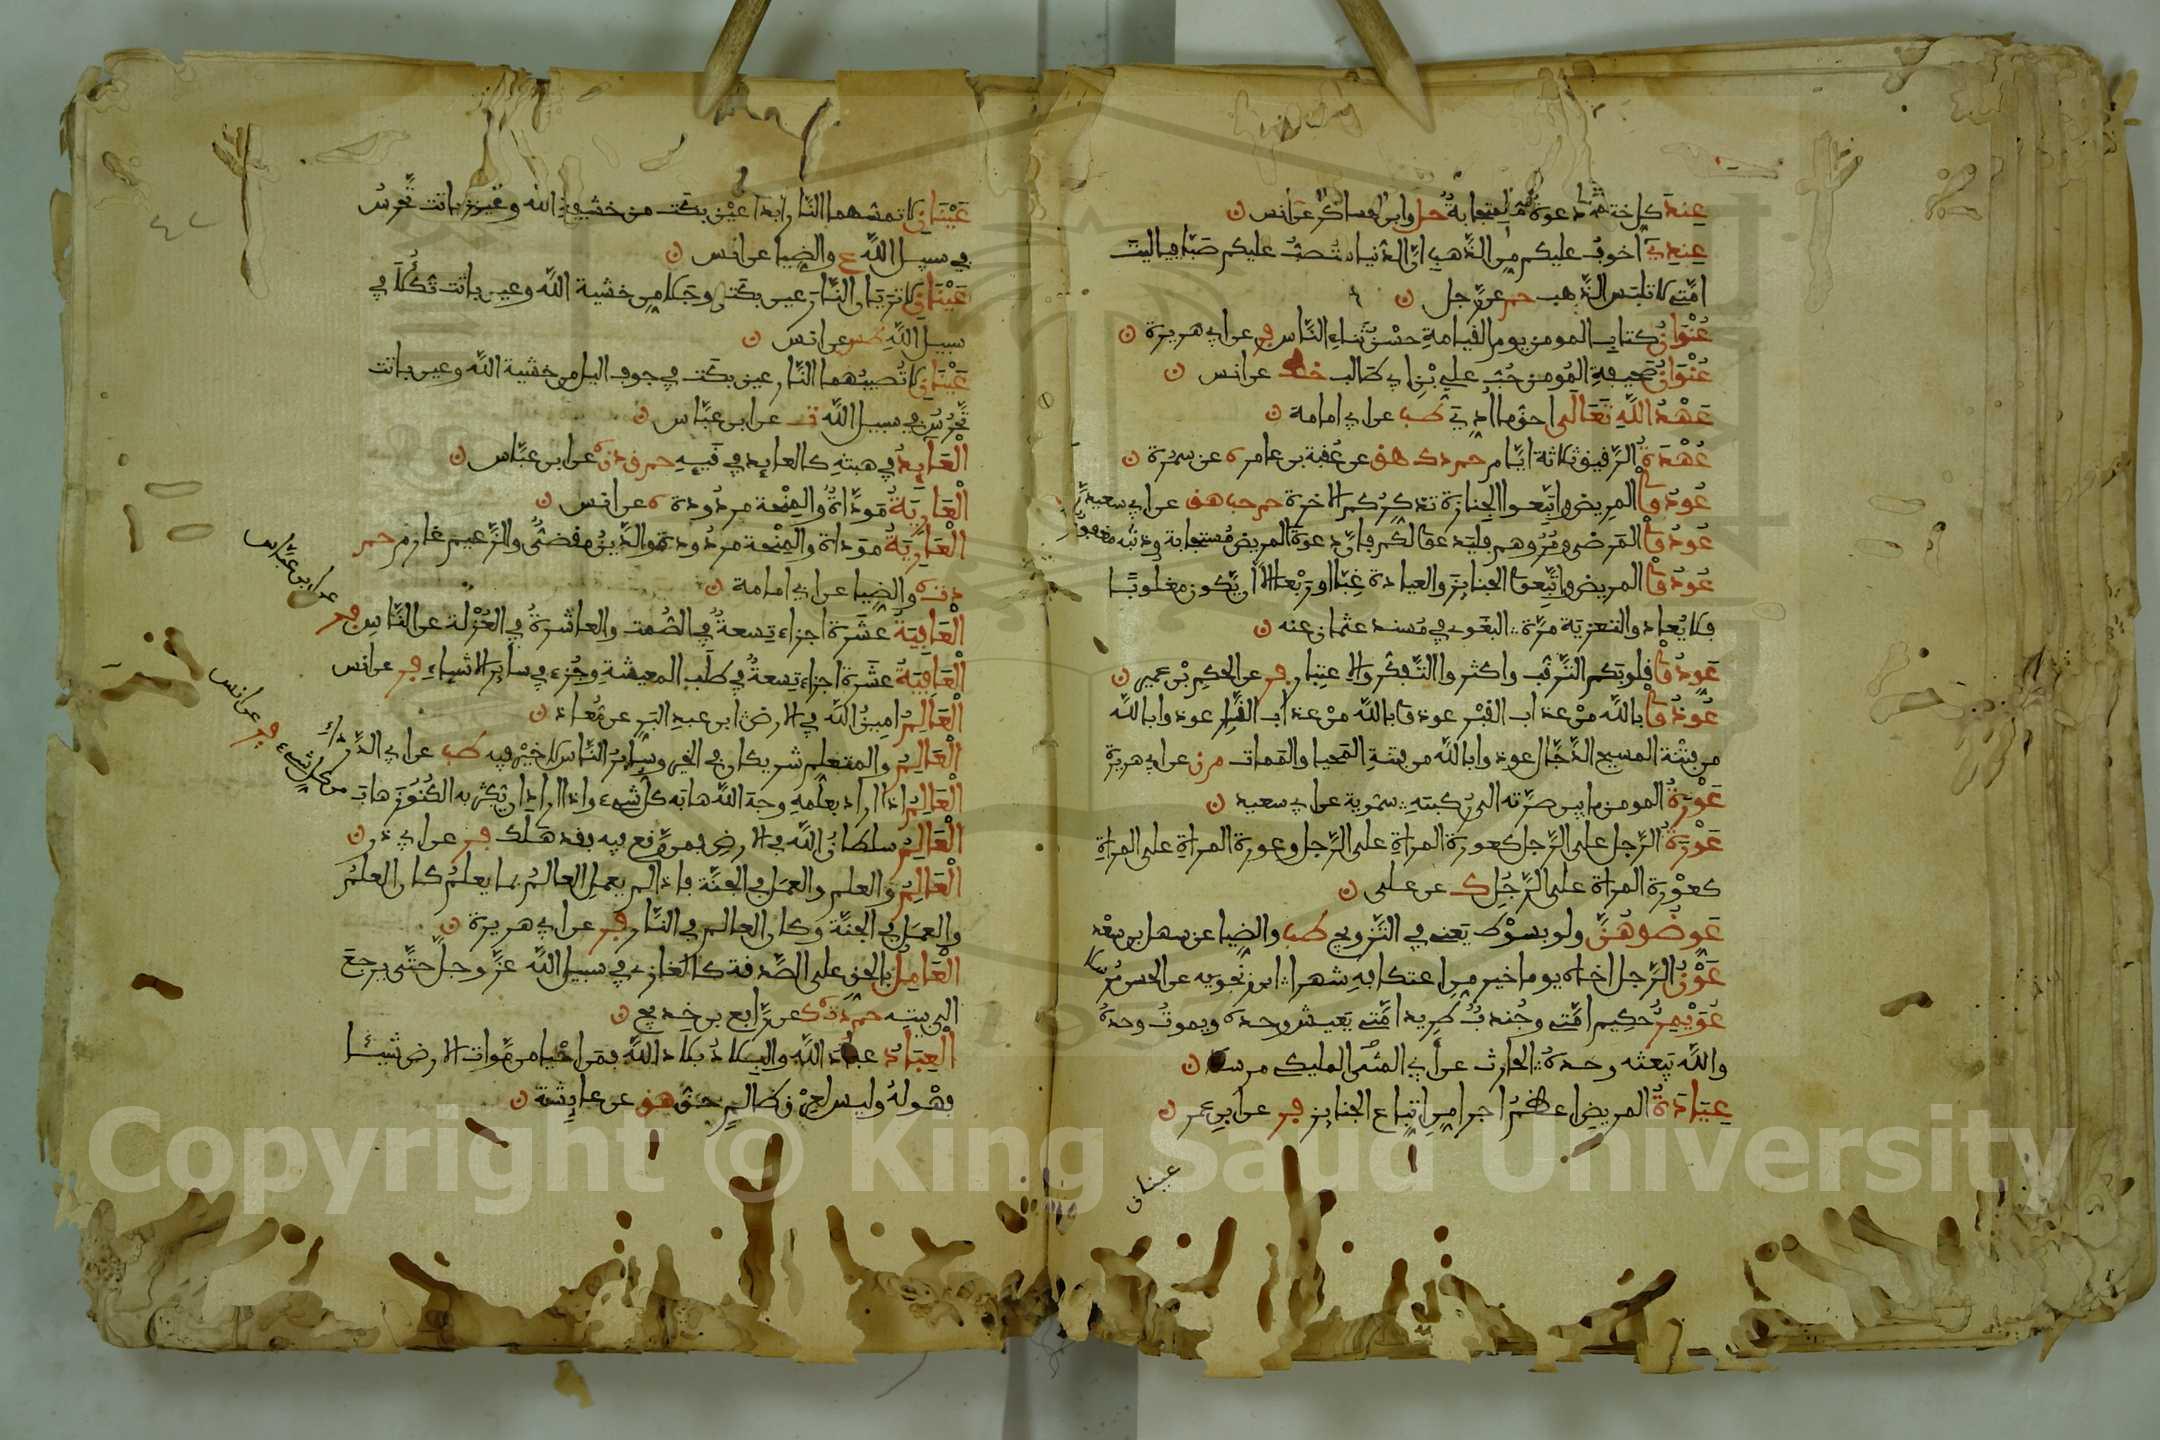 عند كل ختمة دعوة مستجابة حل وابن عساكر عن انس ن
عندي اخوف عليكم من الذهب ان الدنيا ستصب عليكم صبا فيا ليت
امتي لا تلبس الذهب حم عن رجل ن
عنوان كتاب المومن يوم القيامة حسن ثناء الناس فر عن ابي هريرة ن
عنوان صحيفة المومن حب علي بن ابي طالب خط عن انس ن
عهد الله تعالى احق ما ادي طب عن ابي امامة ن
عهدة الرقيق ثلاثة ايام حم د ك هق عن عقبة بن عامر ه عن سمرة ن
عودوا المريض واتبعوا الجنازة تذكركم الاخرة حم حب هق عن ابي سعيد
عودوا المرضى ومروهم فليدعوا لكم فان دعوة المريض مستجابة وذنبه مغفور
عودوا المريض واتبعوا الجنايز والعيادة غبا او ربعا الا ان يكون مغلوبا
فلا يعاد والتعزية مرة البغوي في مسند عثمان عنه ن
عودوا قلوبكم الترقب واكثروا التفكر والاعتبار فر عن الحكم بن عمير ن
عوذوا بالله من عذاب القبر عوذوا بالله من عذاب النار عوذوا بالله
من فتنة المسيح الدجال عوذوا بالله من فتنة المحيا والممات م ن عن ابي هريرة
عورة المومن ما بين سرته الى ركبته سموية عن ابي سعيد ن
عورة الرجل على الرجل كعورة المراة على الرجل وعورة المراة على المراة
كعورة المراة على الرجل ك عن علي ن
عوضوهن ولو بسوط يعني في التزويج طب والضيا عن سهل بن سعد
عون الرجل اخاه يوما خير من اعتكافه شهرا ابن زنجويه عن الحسن مرسلا
عويمر حكيم امتي وجندب طريد امتي يعيش وحده ويموت وحده
والله يبعثه وحده الحارث عن ابي المثنى المليكي مرسلا ن
عيادة المريض اعظم اجرا من اتباع الجنايز فر عن ابن عمر ن
عينان
عينان لا تمسهما النار ابدا عين بكت من خشية الله وعين باتت تحرس
في سبيل الله ع والضيا عن انس ن
عينان لا تريان النار عين بكت وجلا من خشية الله وعين باتت تكلا في
سبيل الله طس عن انس ن
عينان لا تصيبهما النار عين بكت في جوف اليل من خشية الله وعين باتت
تحرس في سبيل الله ت عن ابن عباس ن
العايد في هبته كالعايد في قيه حم ق د ن ه عن ابن عباس ن
العارية موداة والمنحة مردودة ه عن انس ن
العارية موداة والمنحة مردودة والدين مقضي والزعيم غارم حم
د ت ه والضيا عن ابي امامة ن
العافية عشرة اجزاء تسعة في الصمت والعاشرة في العزلة عن الناس فر
عن ابن عباس
العافية عشرة اجزاء تسعة في طلب المعيشة وجزء في ساير الاشياء فر عن انس
العالم امين الله في الارض ابن عبد البر عن معاذ ن
العالم والمتعلم شريكان في الخير وساير الناس لا خير فيه طب عن ابي الدرداء
العالم اذا اراد بعلمه وجه الله هابه كل شيء واذا اراد ان يكثر به الكنوز هاب
من كل شيء فر عن انس
العالم سلطان الله في الارض فمن وقع فيه فقد هلك فر عن ابي ذر ن
العالم والعلم والعمل في الجنة فاذا لم يعمل العالم بما يعلم كان العلم
والعمل في الجنة وكان العالم في النار فر عن ابي هريرة ن
العامل بالحق على الصدقة كالغازي في سبيل الله عز وجل حتى يرجع
الى بيته حم د ت ه ك عن رافع بن خديج ن
العباد عباد الله والبلاد بلاد الله فمن احيا من موات الارض شيئا
فهو له وليس لعرق ظالم حق هق عن عايشة ن